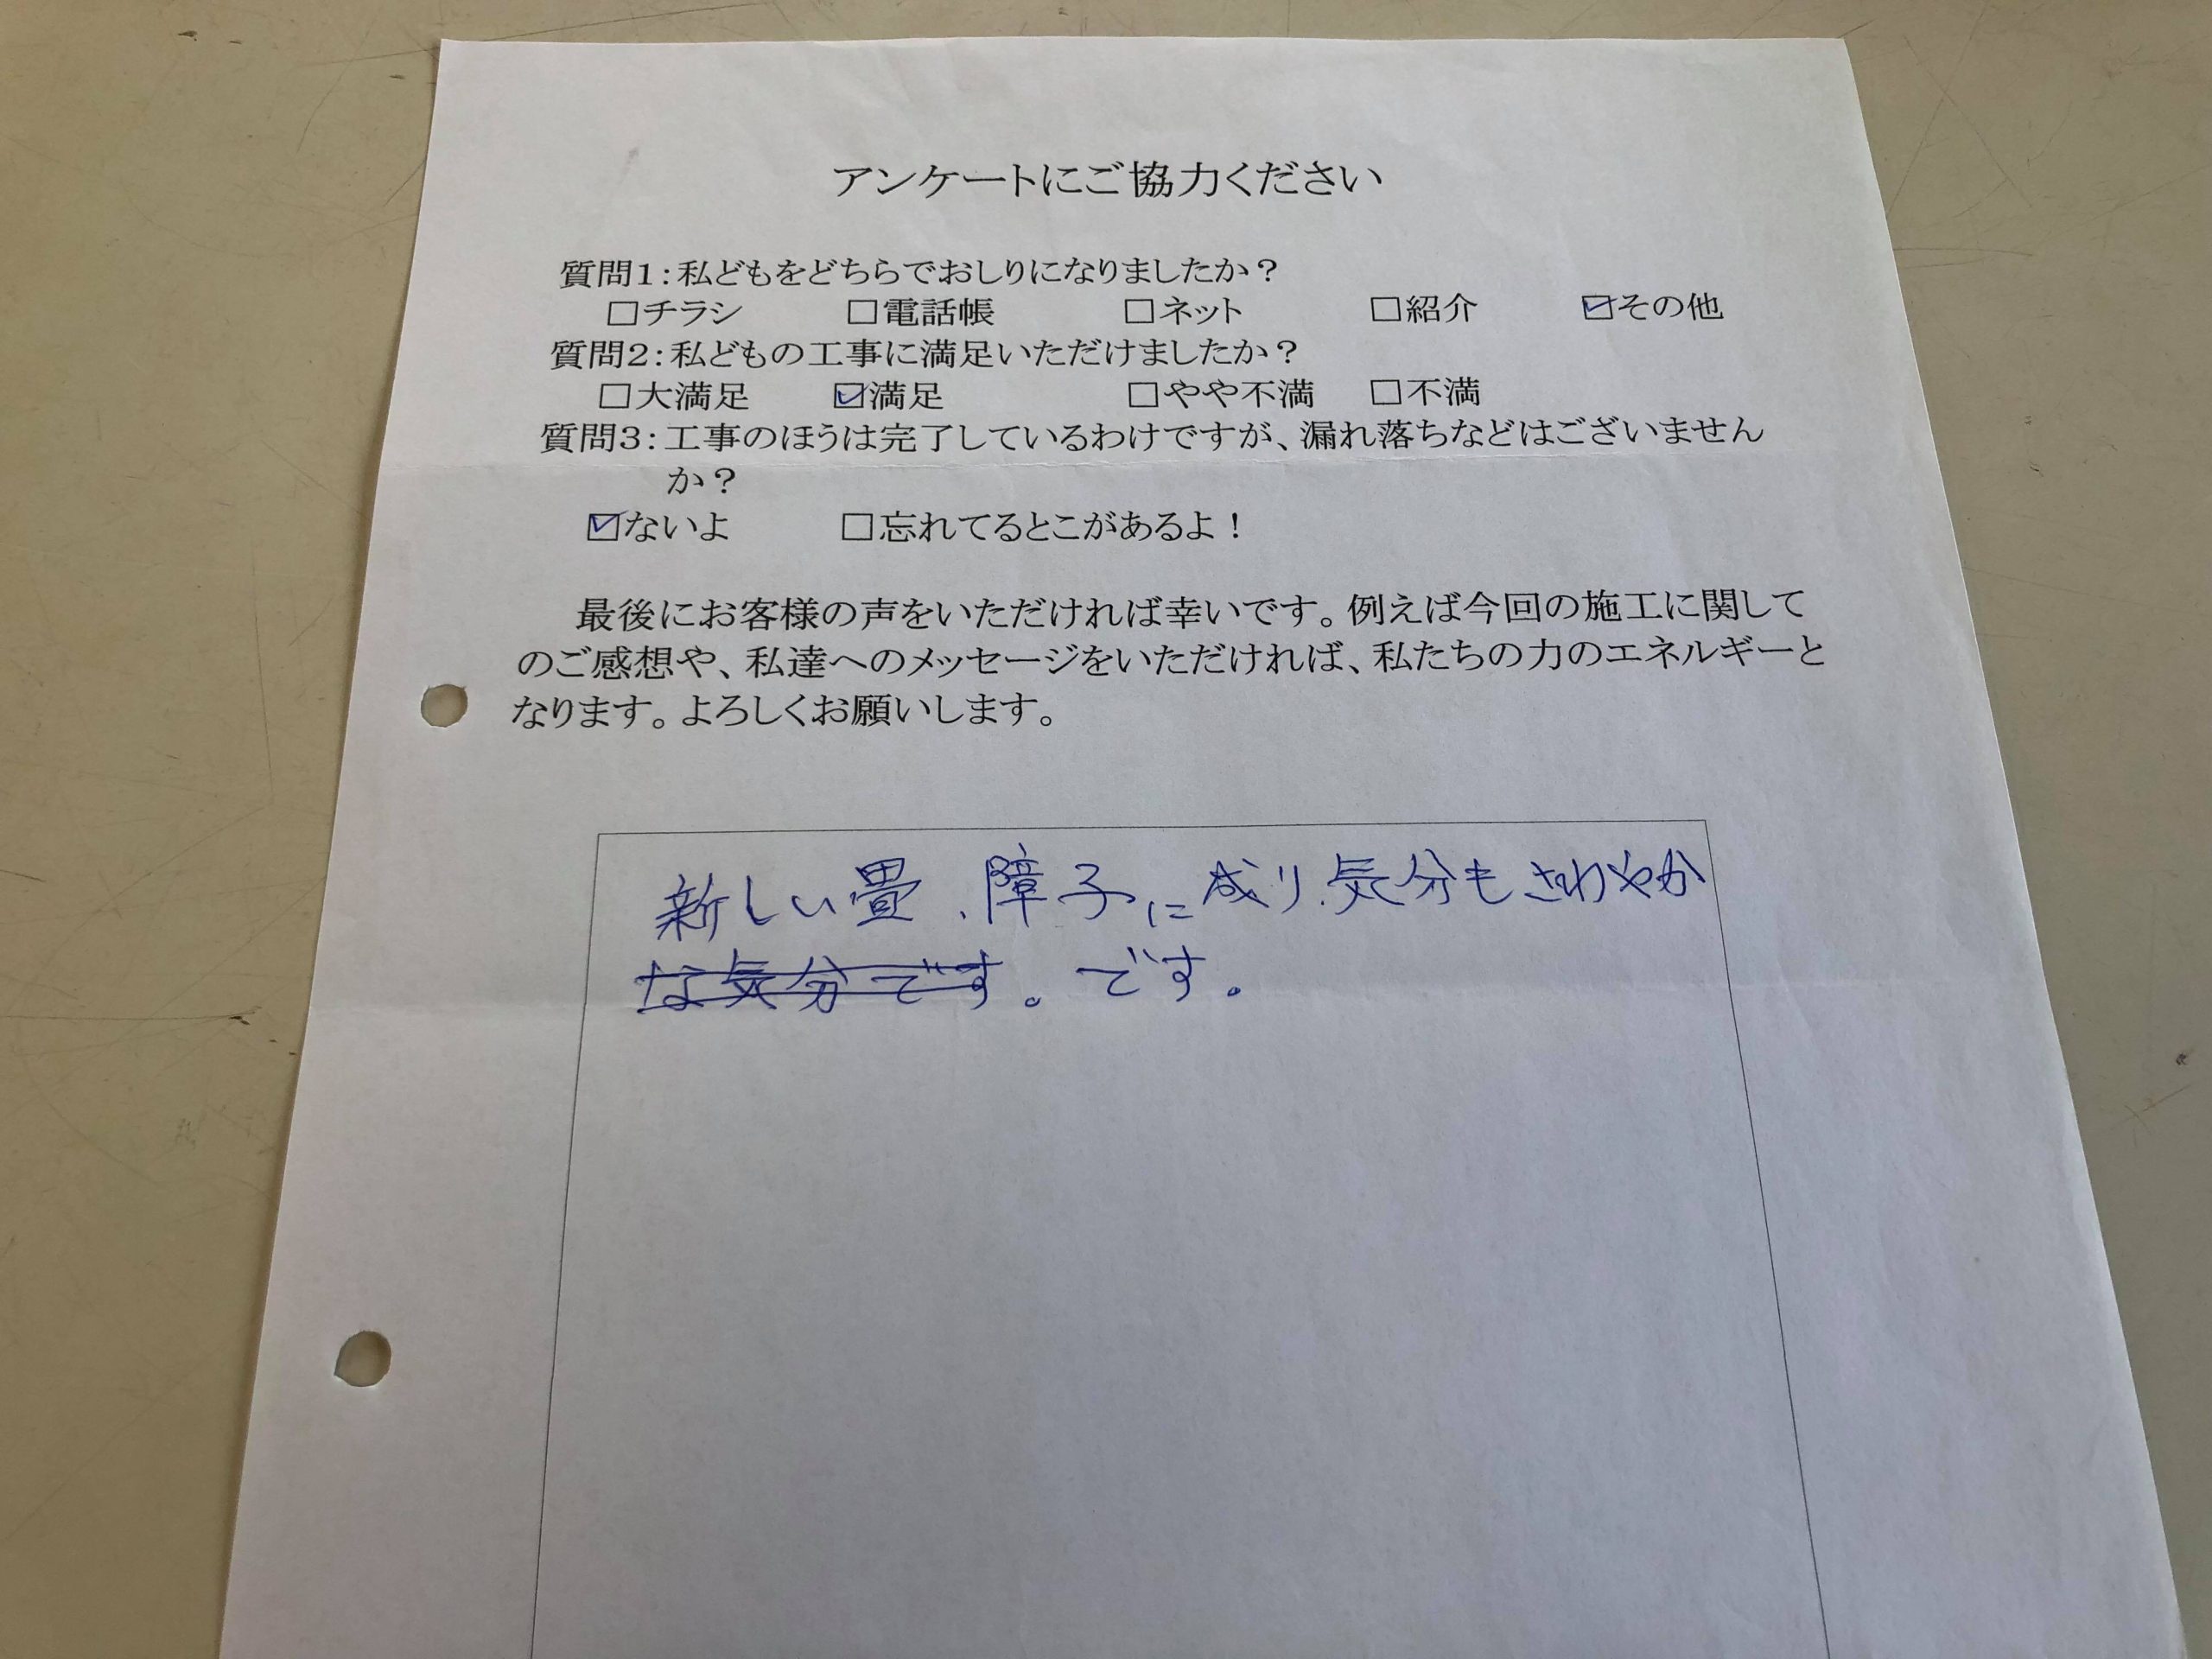 アンケートにご協力ください
質問1:私どもをどちらでおしりになりましたか？
□チラシ □電話帳 □ネット □紹介 ☑その他
質問2:私どもの工事に満足いただけましたか？
□大満足 ☑満足 □やや不満 □不満
質問3:工事のほうは完了しているわけですが、漏れ落ちなどはございません
か？
☑ないよ □忘れてるとこがあるよ！
最後にお客様の声をいただければ幸いです。例えば今回の施工に関して
のご感想や、私達へのメッセージをいただければ、私たちの力のエネルギーと
なります。よろしくお願いします。
新しい畳、障子に成り、気分もさわやか
な気分です。です。